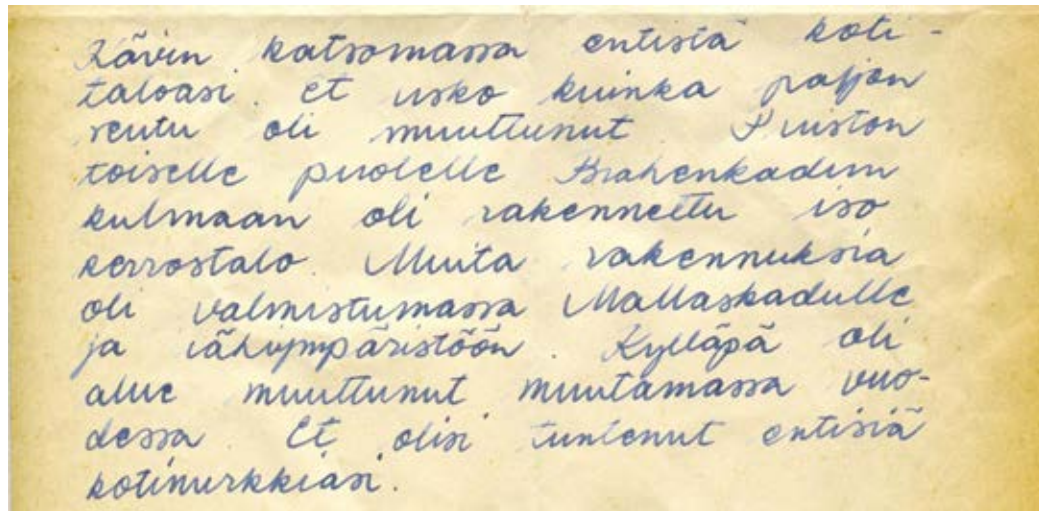 Kävin katsomassa entisiä koti-
taloasi. Et usko kuinka paljon
seutu oli muuttunut Puiston
toiselle puolelle Brahenkadun
kulmaan oli rakennettu iso
kerrostalo. Muita rakennuksia
oli valmistumassa Mallaskadulle
ja lähiympäristöön. Kylläpä oli
alue muuttunut muutamassa vuo-
dessa. Et olisi tuntenut entisiä
kotinurkkiasi.